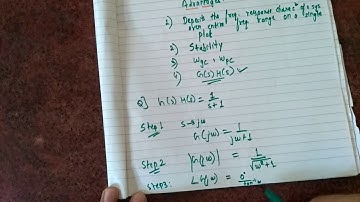 Advantages:
1) Depicts the freq. response charac^s of a sys.
over entire freq. range on a single
plot
2) Stability
3) ωgc, ωpc
4) G(s) H(s) ✓
Q] G(s) H(s) = 1/(s+1)
Step 1 s→jω
G(jω) = 1/(jω+1)
Step 2 |G(jω)| = 1/√(ω²+1)
Step 3: ∠G(jω) = 0°/tan⁻¹ω